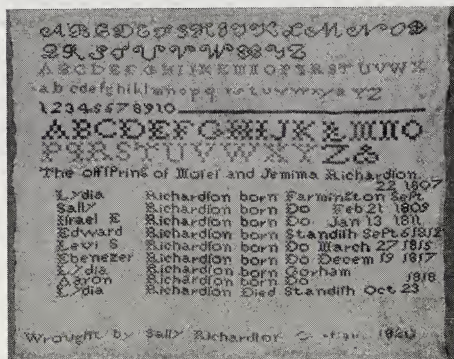 ABCDEFGHIJKLMNOP
QRSTUVWXYZ
ABCDEFGHIJKLMNOPQRSTUVWX
abcdefghiklmnopq rstuvwxyz YZ
12345678910
ABCDEFGHIJKLMNO
PQRSTUVWXYZ&
The offſPring of Moſeſ and Jemima Richardſon
22 1807
Lydia Richardſon born Farmington Sept
Sally Richardſon born Do Feb 21 1809
Iſrael E Richardſon born Do Jan 13 1811
Edward Richardſon born Standiſh SePt 6 1812
Levi S Richardſon born Do March 27 1815
Ebenezer Richardſon born Do Decem 19 1817
Lydia Richardſon born Gorham
Aaron Richardſon born Do 1818
Lydia Richardſon Died Standiſh Oct 23
Wrought by Sally Richardſon 1820